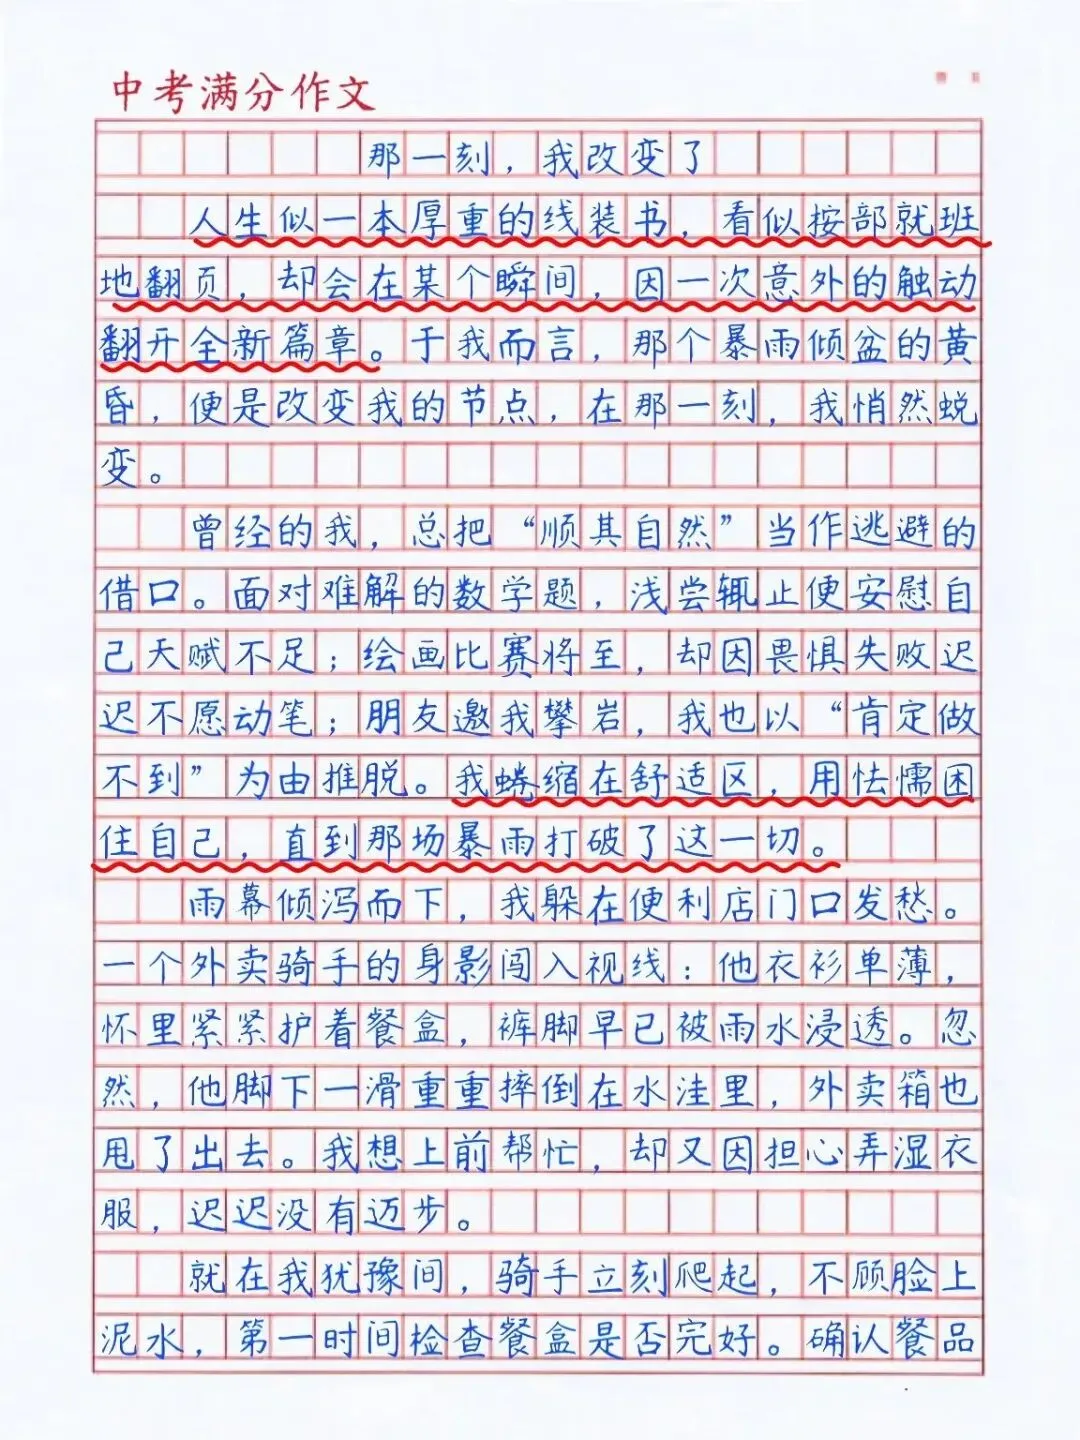 中考满分作文
那一刻，我改变了
人生似一本厚重的线装书，看似按部就班
地翻页，却会在某个瞬间，因一次意外的触动
翻开全新篇章。于我而言，那个暴雨倾盆的黄
昏，便是改变我的节点，在那一刻，我悄然蜕
变。
曾经的我，总把“顺其自然”当作逃避的
借口。面对难解的数学题，浅尝辄止便安慰自
己天赋不足；绘画比赛将至，却因畏惧失败迟
迟不愿动笔；朋友邀我攀岩，我也以“肯定做
不到”为由推脱。我蜷缩在舒适区，用怯懦困
住自己，直到那场暴雨打破了这一切。
雨幕倾泻而下，我躲在便利店门口发愁。
一个外卖骑手的身影闯入视线：他衣衫单薄，
怀里紧紧护着餐盒，裤脚早已被雨水浸透。忽
然，他脚下一滑重重摔倒在水洼里，外卖箱也
甩了出去。我想上前帮忙，却又因担心弄湿衣
服，迟迟没有迈步。
就在我犹豫间，骑手立刻爬起，不顾脸上
泥水，第一时间检查餐盒是否完好。确认餐品